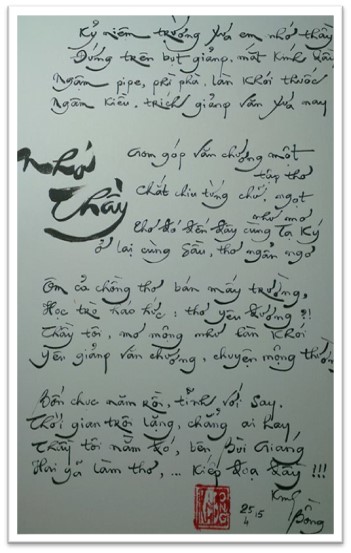 Kỷ niệm trường xưa em nhớ thầy
Đứng trên bục giảng, mắt kính dầy
Ngậm pipe, phì phà, làn khói thuốc
Ngâm Kiều, trích giảng văn xưa nay
Nhớ
Thầy
Gom góp văn chương một
tập thơ
Chắt chiu từng chữ, ngọt
như mơ
Thơ đó đến đây cùng Tạ Ký
Ở lại cùng Sầu, thơ ngẩn ngơ
Ôm cả chồng thơ bán mấy trường,
Học trò háo hức: thơ yêu đương?!
Thầy tôi, mơ mộng như làn khói
Yên giảng văn chương, chuyện mộng thường
Bốn chục năm rồi, tỉnh với say.
Thời gian trôi lặng, chẳng ai hay
Thầy tôi nằm đó, bên Bùi Giáng
Hai gã làm thơ, ... Kiếp đọa đầy!!!
Kml
Bồng
25
4
15